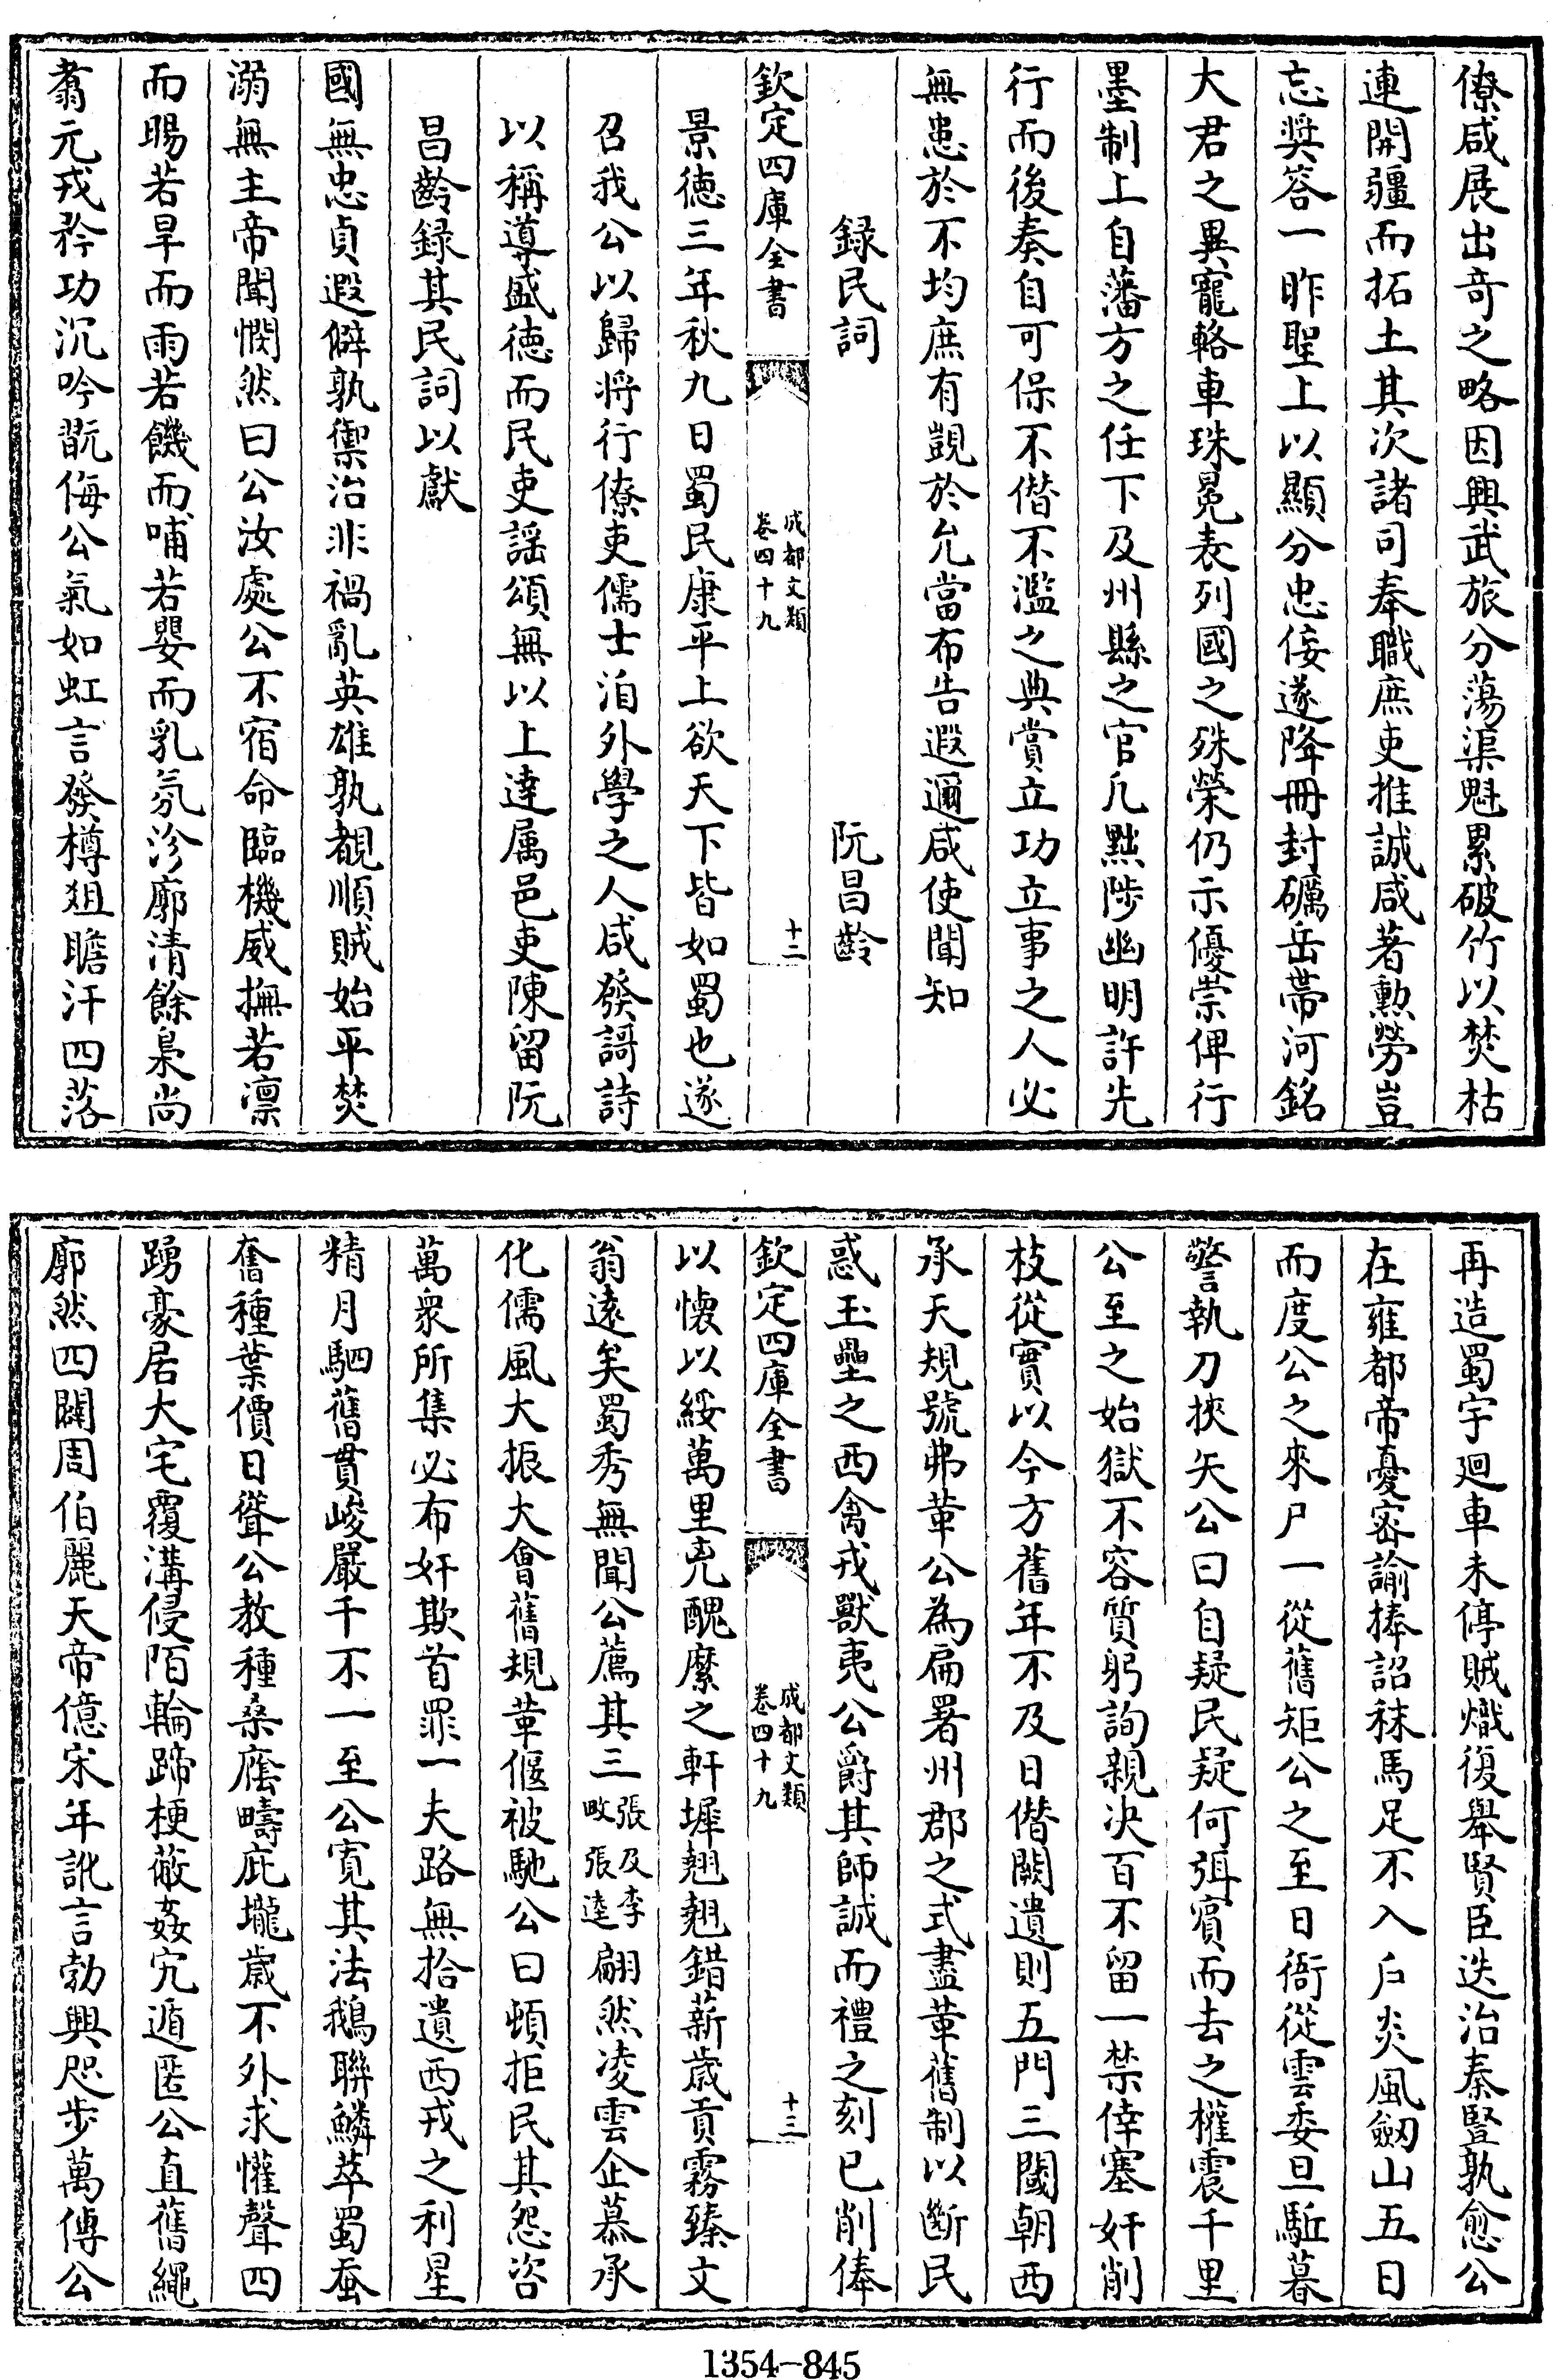 僚咸展出奇之略因興武旅分蕩渠魁累破竹以焚枯
連開疆而拓土其次諸司奉職庶吏推誠咸著勲勞豈
忘奬答一昨聖上以顯分忠佞遂降冊封礪岳帶河銘
大君之異寵輅車珠冕表列國之殊榮仍示優崇俾行
墨制上自藩方之任下及州縣之官凡黜陟幽明許先
行而後奏自可保不僭不濫之典賞立功立事之人必
無患於不均庶有覬於允當布告遐邇咸使聞知
録民詞 阮昌齡
欽定四庫全書 成都文類 卷四十九 十二
景徳三年秋九日蜀民康平上欲天下皆如蜀也遂
召我公以歸将行僚吏儒士洎外學之人咸發謌詩
以稱導盛徳而民吏謡頌無以上達属邑吏陳留阮
昌齡録其民詞以獻
國無忠貞遐僻孰禦治非禍亂英雄孰覩順賊始平焚
溺無主帝聞憫然曰公汝處公不宿命臨機威撫若凛
而暘若旱而雨若饑而哺若嬰而乳氛沴廓清餘梟尚
翥元戎矜功沉吟翫侮公氣如虹言發樽俎瞻汗四落
再造蜀宇廻車未停賊熾復舉賢臣迭治秦豎孰愈公
在雍都帝憂密諭捧詔秣馬足不入户炎風劔山五日
而度公之來尸一從舊矩公之至日衙從雲委旦駈暮
警執刀挾矢公曰自疑民疑何弭賔而去之權震千里
公至之始獄不容質躬詢親决百不留一禁倖塞奸削
枝從實以今方舊年不及日僭闕遺則五門三閾朝西
承天規號弗革公為扁署州郡之式盡革舊制以斷民
惑玉壘之西禽戎獸夷公爵其師誠而禮之刻已削俸
欽定四庫全書 成都文類 卷四十九 十三
以懐以綏萬里兇醜縻之軒墀翹翹錯薪歳貢霧臻文
翁逺矣蜀秀無聞公薦其三張及李畋張逵翩然凌雲企慕承
化儒風大振大會舊規革偃被馳公曰頓拒民其怨咨
萬衆所集必布奸欺首罪一夫路無拾遺西戎之利星
精月駟舊貫峻嚴千不一至公寛其法鵝聯鱗萃蜀蚕
奮種葉價日聳公教種桑廕疇庇壠歳不外求懽聲四
踴豪居大宅覆溝侵陌輪蹄梗蔽姦宄遁匿公直舊繩
廓然四闢周伯麗天帝億宋年訛言勃興咫步萬傳公
1354-845